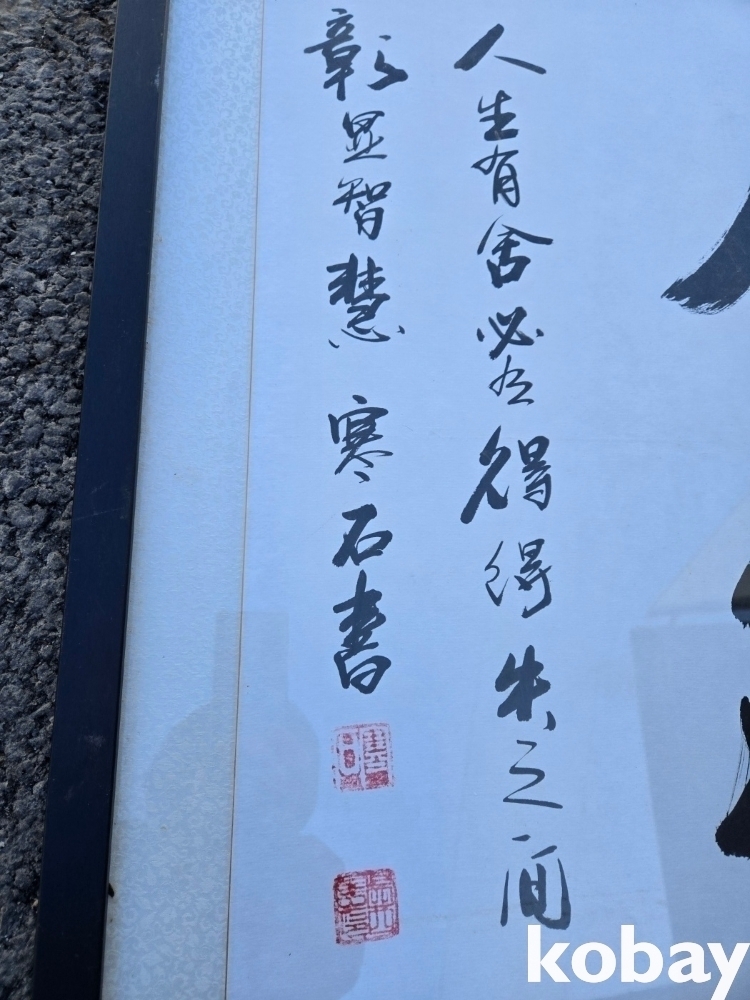 人生有舍必有得得失之间
彰显智慧 寒石书
kobay